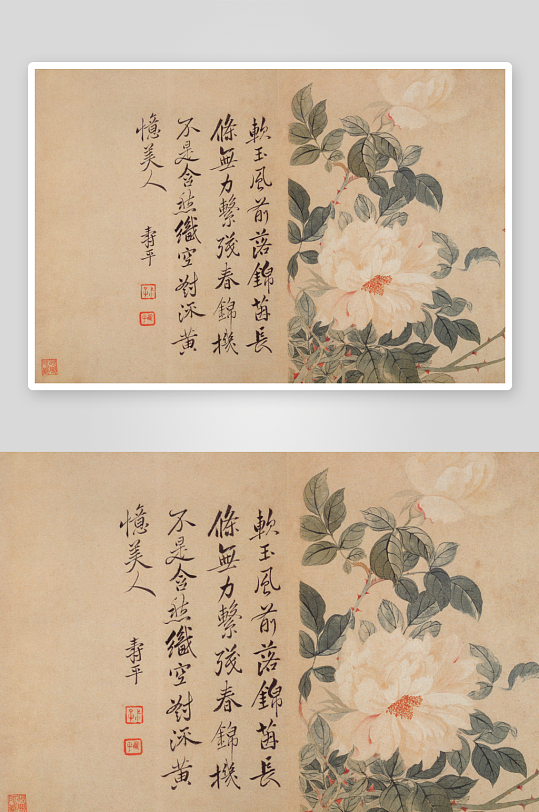 軟玉風前落錦茵長
條無力繫殘春錦機
不是含愁織空對流黃
憶美人
壽平
軟玉風前落錦茵長
條無力繫殘春錦機
不是含愁織空對流黃
憶美人
壽平